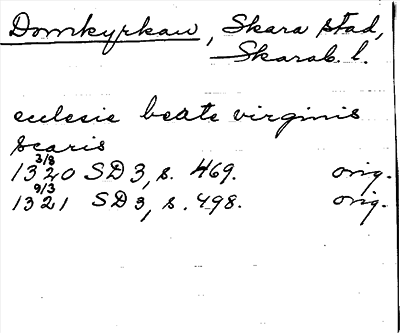 Domkyrkan, Skara stad,
Skarab. l.
eculesie beate virginis
scaris
3/8
1320 SD 3, s. 469. orig.
9/3
1321 SD 3, s. 498. orig.